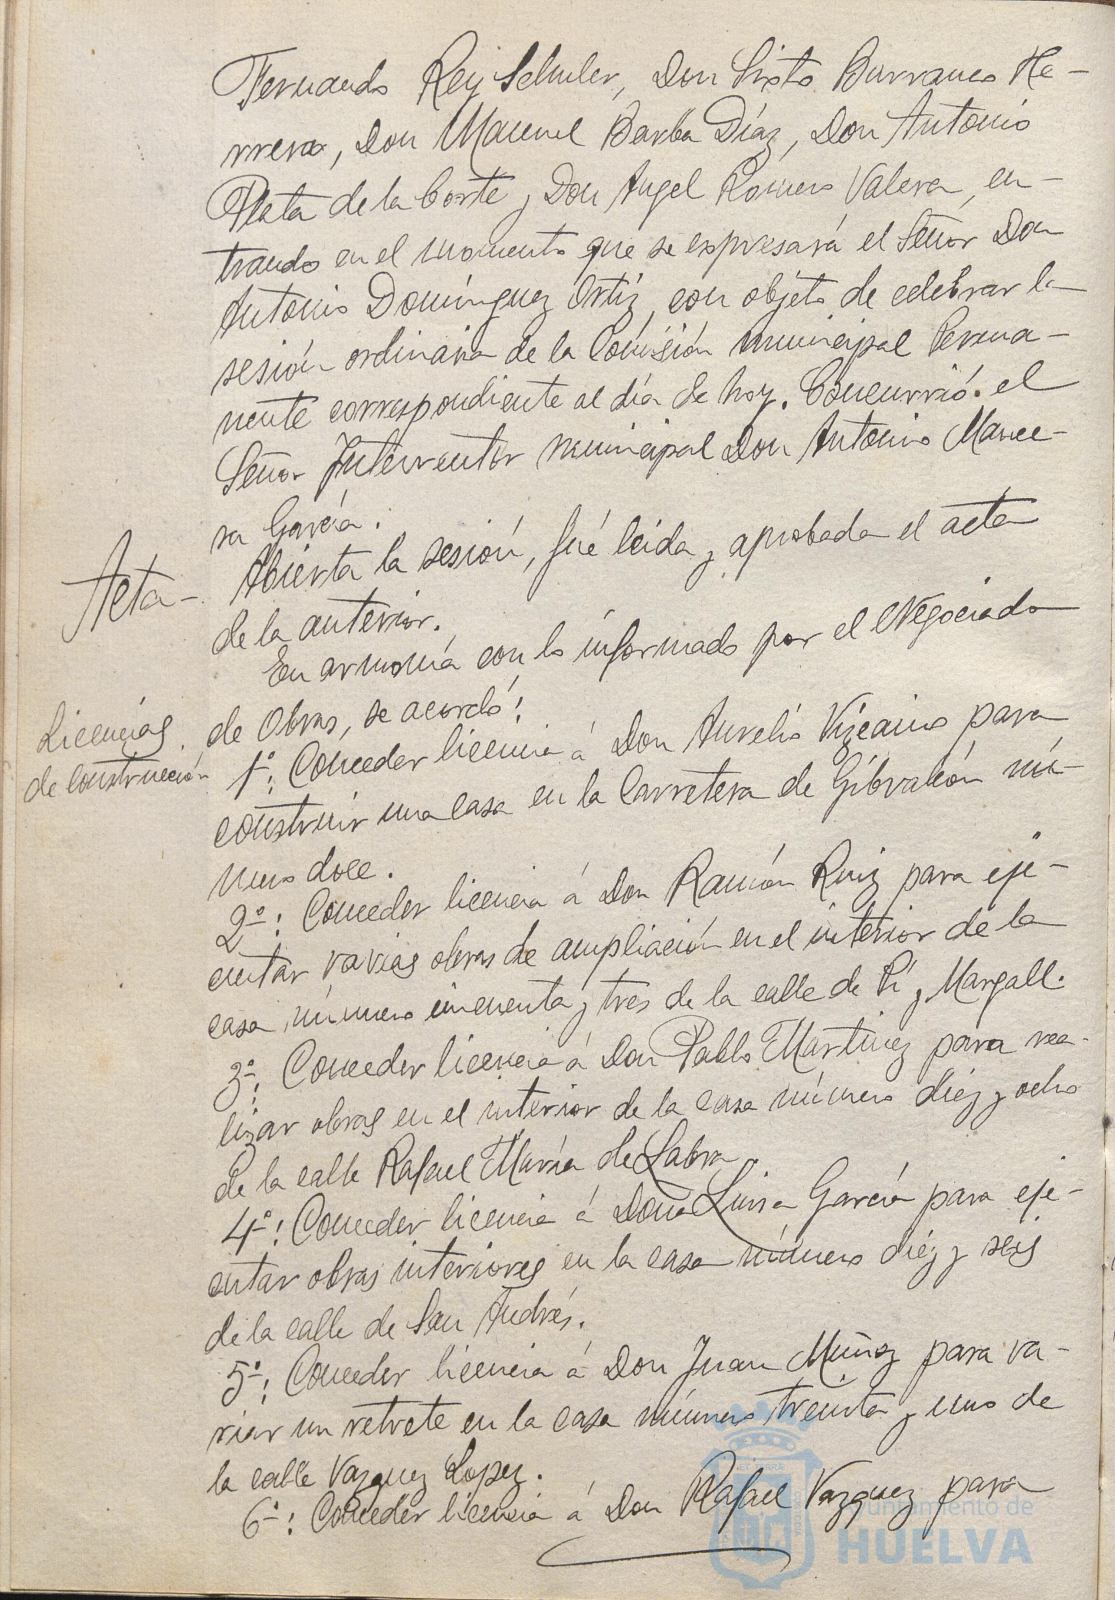 Fernando Rey Schuler, Don Sixto Barranco He-
rrera, Don Manuel Barba Díaz, Don Antonio
Plata de la Corte y Don Angel Romero Valera, en-
trando en el momento que se expresará el Señor Don
Antonio Domínguez Ortiz, con objeto de celebrar la
sesión ordinaria de la Comisión municipal Perma-
nente correspondiente al día de hoy. Concurrió el
Señor Interventor municipal Don Antonio Mance-
ra García.
Acta- Abierta la sesión, fué leida y aprobada el acta
de la anterior.
En armonía con lo informado por el Negociado
de Obras, se acordó:
Licencias
de construcción
1º: Conceder licencia á Don Aurelio Vizcaino para
construir una casa en la Carretera de Gibraleón nú-
mero doce.
2º: Conceder licencia á Don Ramón Ruiz para eje-
cutar varias obras de ampliación en el interior de la
casa número cincuenta y tres de la calle de Pí y Margall.
3º: Conceder licencia á Don Pablo Martinez para rea-
lizar obras en el interior de la casa número diez y ocho
de la calle Rafael María de Labra.
4º: Conceder licencia á Doña Luisa García para eje-
cutar obras interiores en la casa número diez y seis
de la calle de San Andrés.
5º: Conceder licencia á Don Juan Muñoz para va-
riar un retrete en la casa número treinta y uno de
la calle Vazquez Lopez.
6º: Conceder licencia á Don Rafael Vazquez para
Ayuntamiento de
HUELVA